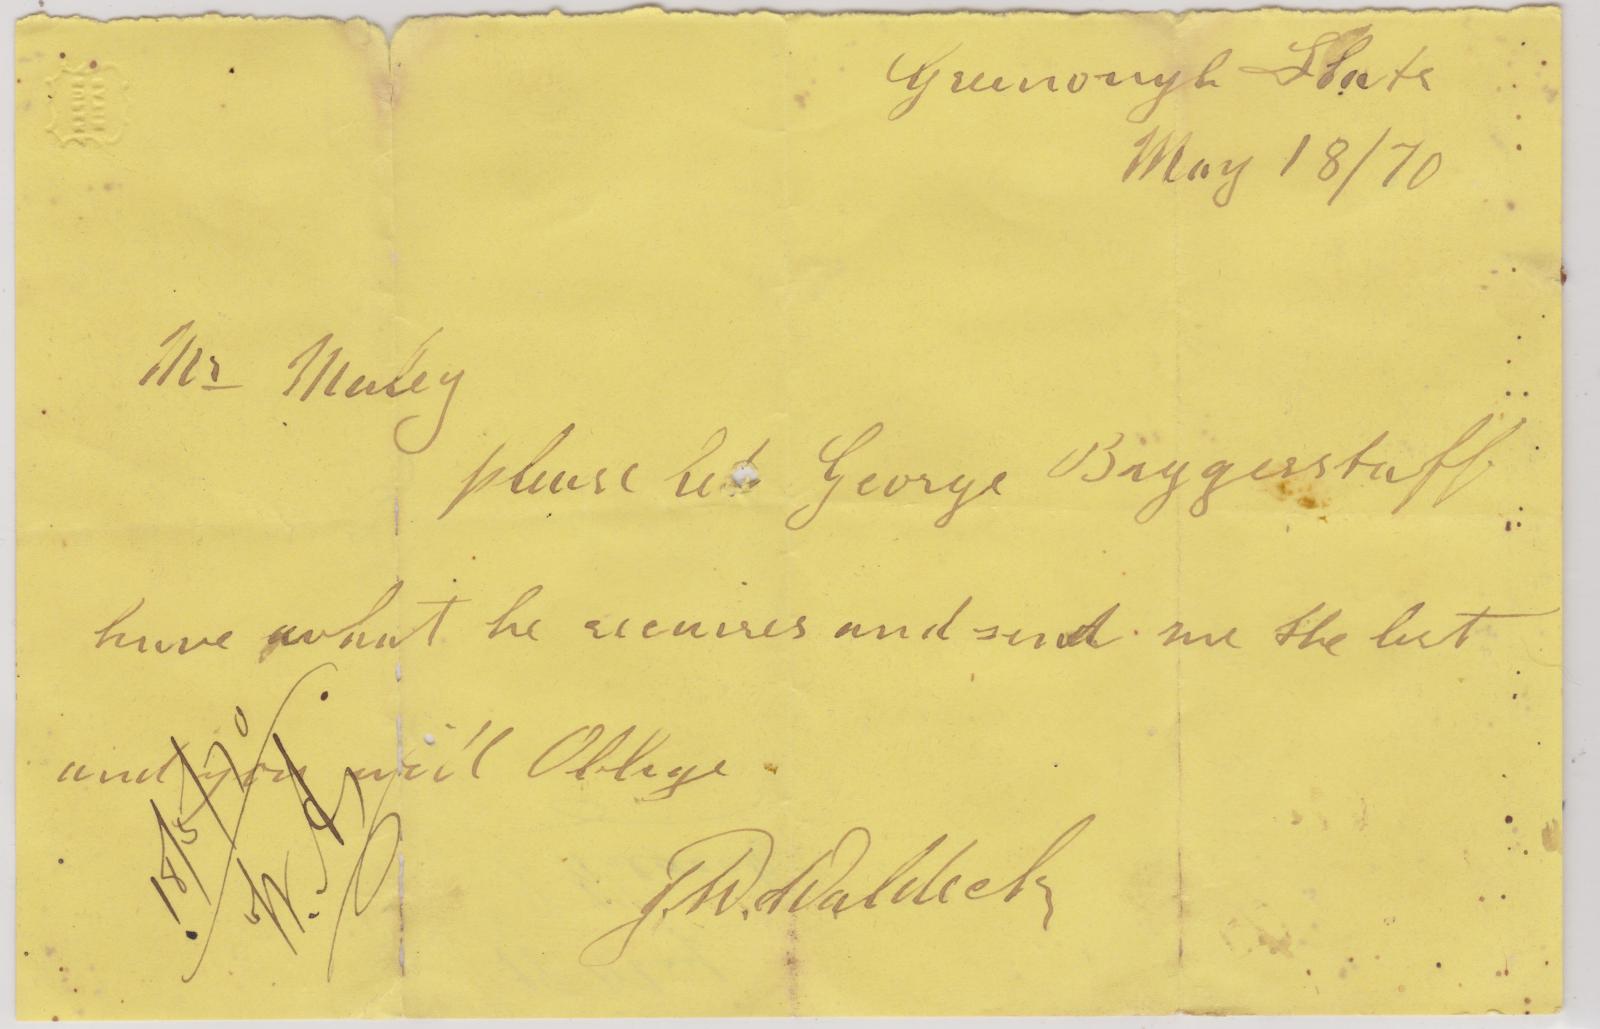 Greenough Flats
May 18/70
Mr Maley
please let George Baggerstaff
have what he recuires and send me the list
and you will Oblige
J. W. Waldeck
18/5/70